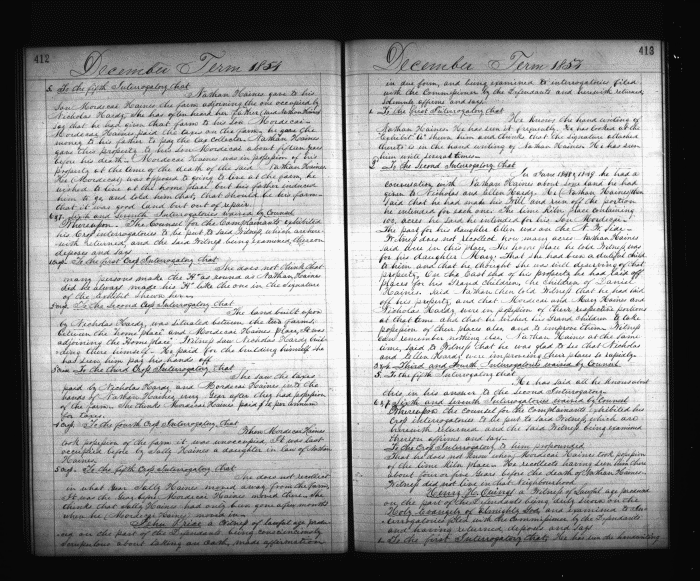 412
December Term 1854
5. To the fifth Interrogatory that
Nathan Haines gave to his
Son Mordecai Haines the farm adjoining the one occupied by
Nicholas Hardy. She has often heard her Father (said Nathan Haines)
say that he had given that farm to his Son Mordecai.
Mordecai Haines paid the taxes on the farm. he gave the
money to his father to pay the tax Collector. Nathan Haines
gave this property to his son Mordecai about fifteen years
before his death. Mordecai Haines was in possession of his
property at the time of the death of the said Nathan Haines
He (Mordecai) was opposed to going to live at the farm, he
wished to live at the home place but his father induced
him to go and told him that, that should be his farm
that it was good land but out of repair.
6 & 7. Sixth and Seventh Interrogatories waived by Counsel
Whereupon The Counsel for the Complainants exhibited
his Cross interrogatories to be put to said Witness which are here-
with returned, and the said Witness being examined thereon
deposes and says
To the first Cross Interrogatory that
She does not think that
many persons make the "H" as round as Nathan Haines
did he always made his "H" like the one in the signature
of the Exhibit shewn here
To the Second Cross Interrogatory that
The land built upon
by Nicholas Hardy, was situated between the two farms,
between the "home place" and Mordecai Haines' place, it was
adjoining the "Home place". Witness saw Nicholas Hardy buil-
ding there himself. He paid for the building himself she
had seen him pay his hands off
To the third Cross Interrogatory that
She saw the taxes
paid by Nicholas Hardy and Mordecai Haines into the
hands of Nathan Haines every year after they had possession
of the farm. She thinks Mordecai Haines paid per annum
for taxes.
To the fourth Cross Interrogatory that
When Mordecai Haines
took possession of the farm it was unoccupied. It was last
occupied before by Sally Haines a daughter in law of Nathan
Haines
To the fifth Cross Interrogatory that
She does not recollect
in what year Sally Haines moved away from the farm.
It was the year before Mordecai Haines moved there. She
thinks that Sally Haines had only been gone a few months
when he (Mordecai Haines) moved in.
John Price a Witness of lawful age produ-
ced on the part of the Defendants being conscientiously
scrupulous about taking an oath, made affirmation
413
December Term 1854
in due form, and being examined to interrogatories filed
with the Commissioner by the Defendants and herewith returned
solemnly affirms and says
1. To the first Interrogatory that
He knows the hand writing of
Nathan Haines. He has seen it frequently. He has looked at the
"Exhibit" shewn him and thinks that the signature attached
thereto is in the hand writing of Nathan Haines. He has seen
him write several times.
2. To the Second Interrogatory that
In June 1848 or 1849 he had a
conversation with Nathan Haines about some land he had
given to Nicholas and Ellen Hardy. He (Nathan Haines) then
said that he had made his Will and run off the portion
he intended for each one. The lime kiln place containing
acres he said he intended for his Son Mordecai.
The part for his daughter Ellen was on the N. W. side.
Witness does not recollect how many acres Nathan Haines
said were in this place. The home place he told Witness was
for his daughter Mary. That she had been a dutiful child
to him and that he thought she was well deserving of that
property. On the East side of his property he had laid off
places for his Grand Children, the children of Daniel
Haines. Said Nathan then told Witness that he had laid
off his property, and that Mordecai and Mary Haines and
Nicholas Hardy were in possession of their respective portions
at that time and that he wished his Grand Children to take
possession of their places also and to improve them. Witness
can remember nothing else. Nathan Haines at the same
time, said to Witness that he was glad to see that Nicholas
and Ellen Hardy were improving their place so rapidly.
3 & 4. Third and Fourth Interrogatories waived by Counsel
5. To the fifth Interrogatory that
He has said all he knows about
this, in his answer to the Second Interrogatory.
6 & 7. Sixth and Seventh Interrogatories waived by Counsel
Whereupon the Counsel for the Complainants exhibited his
Cross interrogatories to be put to said Witness, which are
herewith returned and the said Witness being examined
thereon affirms and says
To the Cross Interrogatory to him propounded
That he does not know when Mordecai Haines took possession
of the lime kiln place. He recollects having seen him there
about four or five years before the death of Nathan Haines.
Witness did not live in that neighbourhood.
Henry H. a Witness of lawful age produced
on the part of the Defendants being duly sworn on the
Holy Evangely of Almighty God, and examined to In-
terrogatories filed with the Commissioner by the Defendants
and herewith returned, deposes and says
1. To the first Interrogatory that, He has seen the handwriting